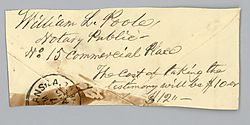 William L. Poole
Notary Public -
No 15 Commercial Place
The Cost of taking the
testimony will be $10 or
$12 -